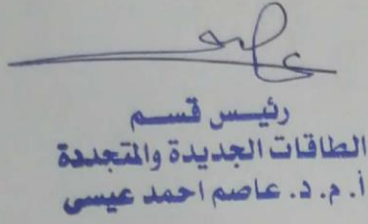 رئيس قسم
الطاقات الجديدة والمتجددة
أ. م. د. عاصم احمد عيسى